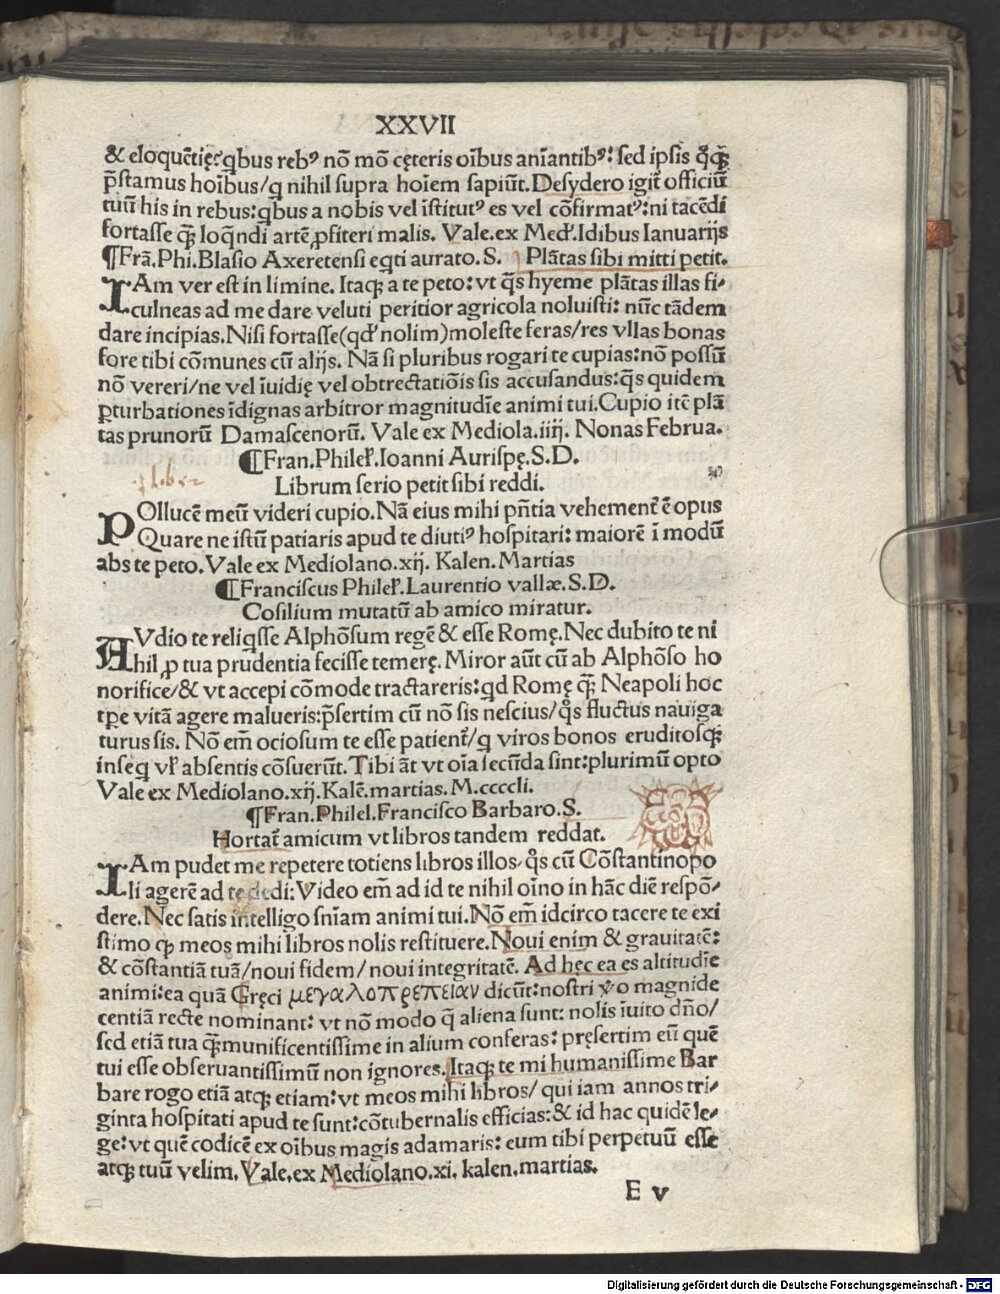 XXVII
& eloquētię? qbus rebꝰ nō mō cęteris oībus aniantibꝰ: sed ipsis qꝗꝫ
p̄stamus hoībus/q nihil supra hoīem sapiūt. Desydero igit̄ officiū
tuū his in rebus: qbus a nobis vel īstitutꝰ es vel cōfirmatꝰ: ni tacēdi
fortasse ꝙ loq̄ndi artē ꝓfiteri malis. Vale. ex Med̕. Idibus Ianuarijs
¶Frā. Phi. Blasio Axeretensi eqti aurato. S. Plātas sibi mitti petit.
IAm ver est in limine. Itaqꝫ a te peto: vt q̄s hyeme plātas illas fi⸗
culneas ad me dare veluti peritior agricola noluisti: nūc tādem
dare incipias. Nisi fortasse (qd̕ nolim) moleste feras/res vllas bonas
fore tibi cōmunes cū alijs. Nā si pluribus rogari te cupias: nō possū
nō vereri/ne vel īuidię vel obtrectatiōis sis accusandus: q̄s quidem
ꝑturbationes īdignas arbitror magnitudīe animi tui. Cupio itē plā
tas prunorū Damascenorū. Vale ex Mediola. iiij. Nonas Februa.
¶Fran. Philef̕. Ioanni Aurispę. S. D.
Librum serio petit sibi reddi.
POllucē meū videri cupio. Nā eius mihi pn̄tia vehement̄ ē opus
Quare ne istū patiaris apud te diutiꝰ hospitari: maiorē ī modū
abs te peto. Vale ex Mediolano. xij. Kalen. Martias
¶Franciscus Philef̕. Laurentio vallæ. S. D.
Cosilium mutatū ab amico miratur.
AVdio te reliqsse Alphōsum regē & esse Romę. Nec dubito te ni
hil ꝓ tua prudentia fecisse temerę. Miror aūt cū ab Alphōso ho
norifice/& vt accepi cōmode tractareris: qd Romę ꝙ Neapoli hoc
tꝑe vitā agere malueris: p̄sertim cū nō sis nescius/q̊s fluctus nauiga
turus sis. Nō em̄ ociosum te esse patient̄/q viros bonos eruditosqꝫ
inseq vl̕ absentis cōsuerūt. Tibi āt vt oīa secūda sint: plurimū opto
Vale ex Mediolano. xij. Kalē. martias. M. ccccli.
¶Fran. Philel. Francisco Barbaro. S.
Hortat̄ amicum vt libros tandem reddat.
IAm pudet me repetere totiens libros illos, q̊s cū Cōstantinopo
li agerē ad te dedi: Video em̄ ad id te nihil oīno in hāc diē respō⸗
dere. Nec satis intelligo sn̄iam animi tui. Nō em̄ idcirco tacere te exi
stimo ꝙ meos mihi libros nolis restituere. Noui enim & grauitatē:
& cōstantiā tuā/noui fidem/noui integritatē. Ad hęc ea es altitudīe
animi: ea quā Gręci μεγαλοπρεπειαν dicūt: nostri v̊o magnide
centiā recte nominant: vt nō modo q̄ aliena sunt: nolis īuito dn̄o/
sed etiā tua ꝙmunificentissime in alium conferas: pręsertim eū quē
tui esse obseruantissimū non ignores. Itaqꝫ te mi humanissime Bar
bare rogo etiā atqꝫ etiam: vt meos mihi libros/ qui iam annos tri⸗
ginta hospitati apud te sunt: cōtubernalis efficias: & id hac quidē le⸗
ge: vt quē codicē ex oībus magis adamaris: eum tibi perpetuū esse
atqꝫ tuū velim. Vale. ex Mediolano. xi. kalen. martias.
E v
Digitalisierung gefördert durch die Deutsche Forschungsgemeinschaft - DFG